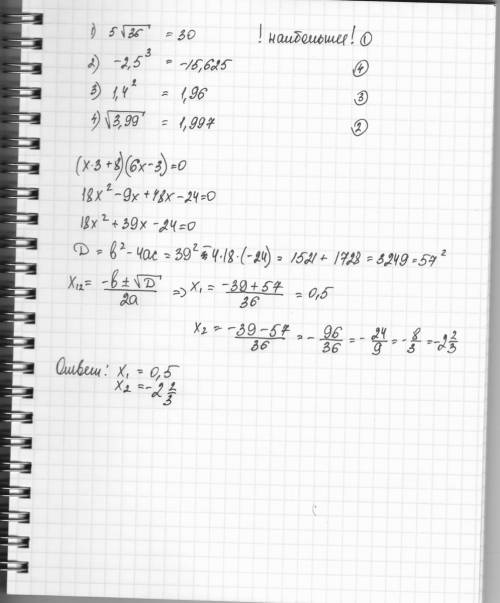 1) 5√36 = 30 ! наибольшее! ①
2) -2,5³ = -15,625 ④
3) 1,4² = 1,96 ③
4) √3,99 = 1,997 ②
(x·3+8)(6x-3)=0
18x²-9x+48x-24=0
18x²+39x-24=0
D = b²-4ac = 39²-4·18·(-24) = 1521+1728=3249=57²
x₁₂ = (-b±√D)/2a => x₁ = (-39+57)/36 = 0,5
x₂ = (-39-57)/36 = -96/36 = -24/9 = -8/3 = -2 2/3
Ответ: x₁ = 0,5
x₂ = -2 2/3